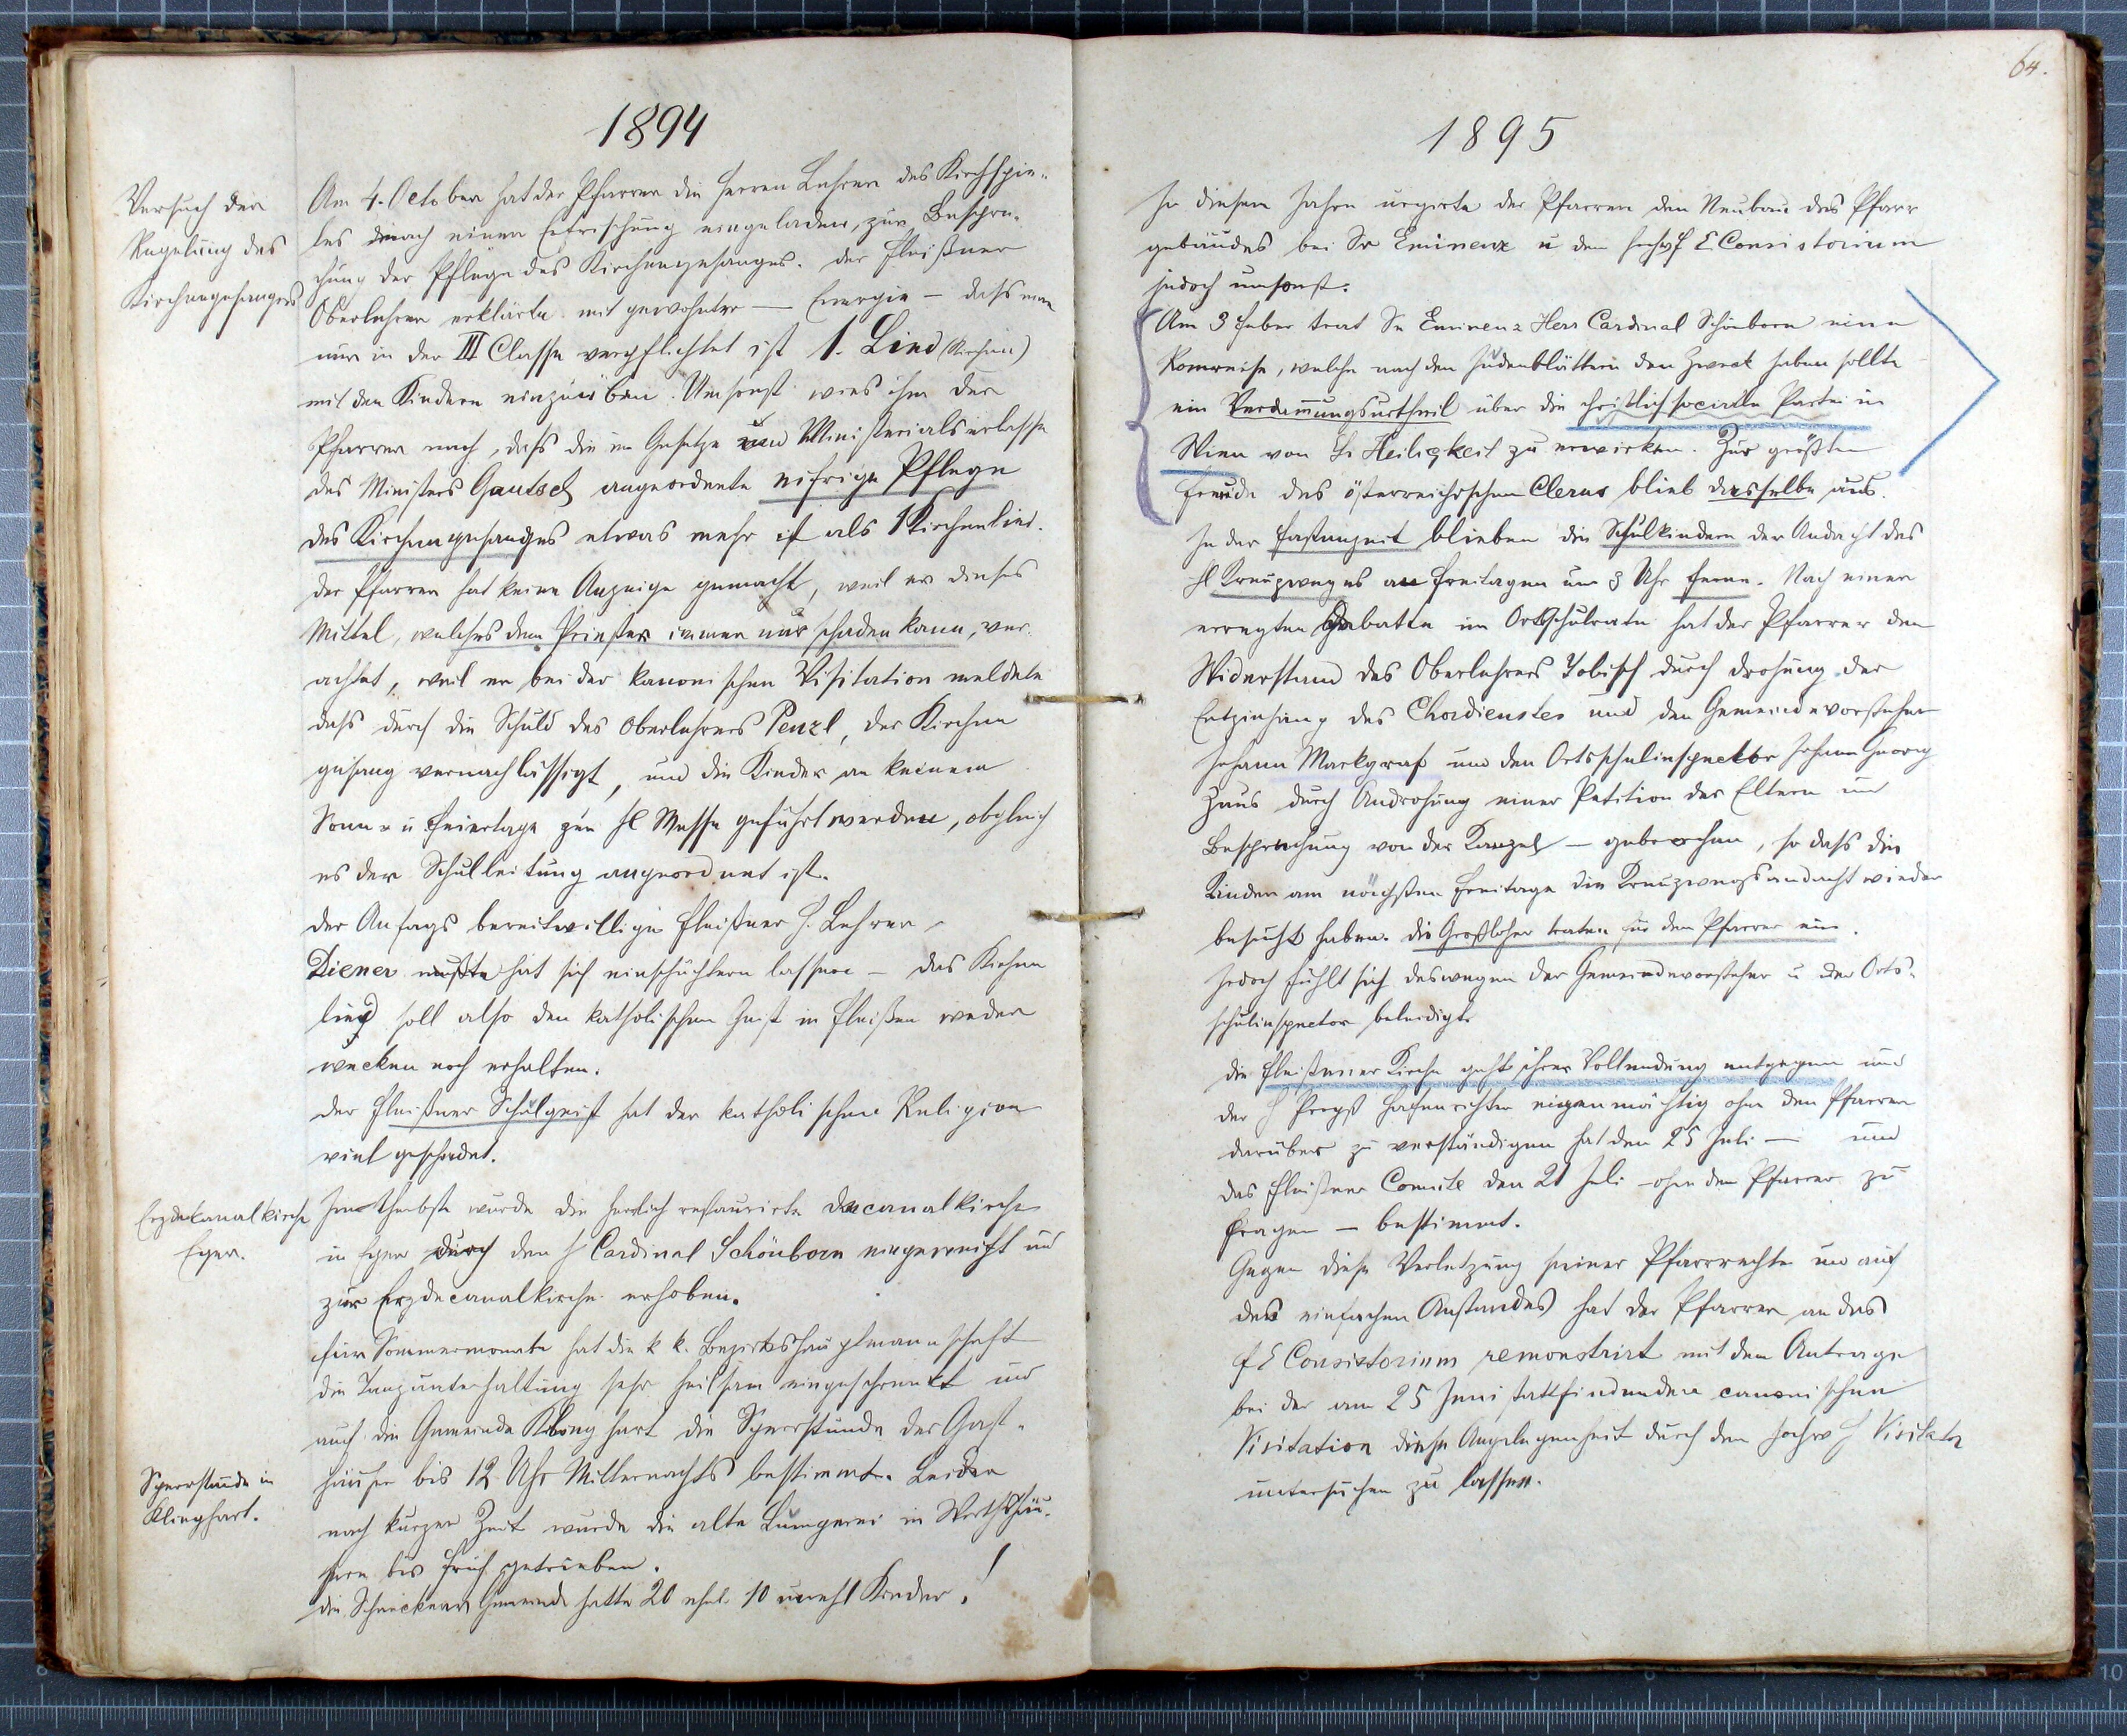 1894
Versuch der
Regelung des
Kirchengesanges
Am 4. October hat der Pfarrer die Herren Lehrer des Kirchspie-
les nach einer Erfrischung eingeladen, zur Bespre-
chung der Pflege des Kirchengesanges. Der Fleißner
Oberlehrer erklärte mit gewohnter — Energie — daß man
nur in der III Classe verpflichtet ist 1. Lied (Kirchen)
mit den Kindern einzuüben. Umsonst wies ihm der
Pfarrer nach, daß die im Gesetze und Ministerialerlasse
des Ministers Gautsch angeordnete eifrige Pflege
des Kirchengesanges etwas mehr ist als 1 Kirchenlied.
Der Pfarrer hat keine Anzeige gemacht, weil er dieses
Mittel, welches dem Priester immer nur schaden kann, ver-
achtet, weil er bei der kanonischen Visitation meldete
daß durch die Schuld des Oberlehrers Penzl, der Kirchen
gesang vernachlässigt, und die Kinder an keinem
Sonn- u Feiertage zur hl Messe geführt werden, obgleich
es der Schulleitung angeordnet ist.
Der Anfags bereitwillige Fleißner H. Lehrer
Diener mußte hat sich einschüchtern lassen — das Kirchen
lied soll also den katholischen Geist in Fleißen weder
wecken noch erhalten.
Der Fleißner Schulgeist hat der katholischen Religion
viel geschadet.
Erzdekanalkirche
Eger.
Im Herbste wurde die herrlich restaurirte Decanalkirche
in Eger durch den H Cardinal Schönborn eingeweiht und
zur Erzdecanalkirche erhoben.
Für Sommermonate hat die k k. Bezirkshauptmannschaft
die Tanzunterhaltung sehr heilsam eingeschränkt und
auch die Gemeinde Klinghart die Sperrstunde der Gast-
Sperrstunde in
Klinghart.
häuser bis 12 Uhr Mitternachts bestimmt. Leider
nach kurzer Zeit wurde die alte Lumperei in Wirthshäu-
sern bis früh getrieben.
Die Schnecken Gemeinde hatte 20 ehel. 10 unehl Kinder!
64.
1895
In diesem Jahre urgirte der Pfarrer den Neubau des Pfarr
gebäudes bei Sr Eminenz u dem hochw f E Consistorium
jedoch umsonst.
Am 3 Feber trat Se Eminenz Herr Cardinal Schönborn eine
Romreise, welche nach den Judenblättern den Zweck haben sollte
ein Verdammungsurtheil über die christlichsociale Partei in
Wien von Sr Heiligkeit zu erwirken. Zur größten
Freude des österreichischen Clerus blieb dasselbe aus.
In der Fastenzeit blieben die Schulkinder der Andacht des
hl Kreuzweges an Freitagen um 3 Uhr ferne. Nach einer
erregten Debatte im Ortsschulrate hat der Pfarrer den
Widerstand des Oberlehrers Tobisch durch Drohung der
Entziehung des Chordienstes und den Gemeindevorsteher
Johann Markgraf und den Ortsschulinspektor Johann Georg
Zaus durch Androhung einer Petition der Eltern und
Besprechung von der Kanzel — gebrochen, so daß die
Kinder am nächsten Freitage die Kreuzwegsandacht wieder
besucht haben. Die Großloher traten für den Pfarrer ein.
Jedoch fühlt sich deswegen der Gemeindevorsteher u der Orts-
schulinspector beleidigt.
Die Fleißener Kirche geht ihrer Vollendung entgegen und
der H Propst Hahnrichter eigenmächtig ohne den Pfarrer
darüber zu verständigen hat den 25 Juli — und
das Fleißner Comite den 21 Juli — ohne den Pfarrer zu
fragen — bestimmt.
Gegen diese Verletzung seiner Pfarrrechte und auch
des einfachen Anstandes hat der Pfarrer an das
f E Consistorium remonstrirt mit dem Antrage
bei der am 25 Juni stattfindenden canonischen
Visitation diese Angelegenheit durch den hochw H Visitator
untersuchen zu lassen.